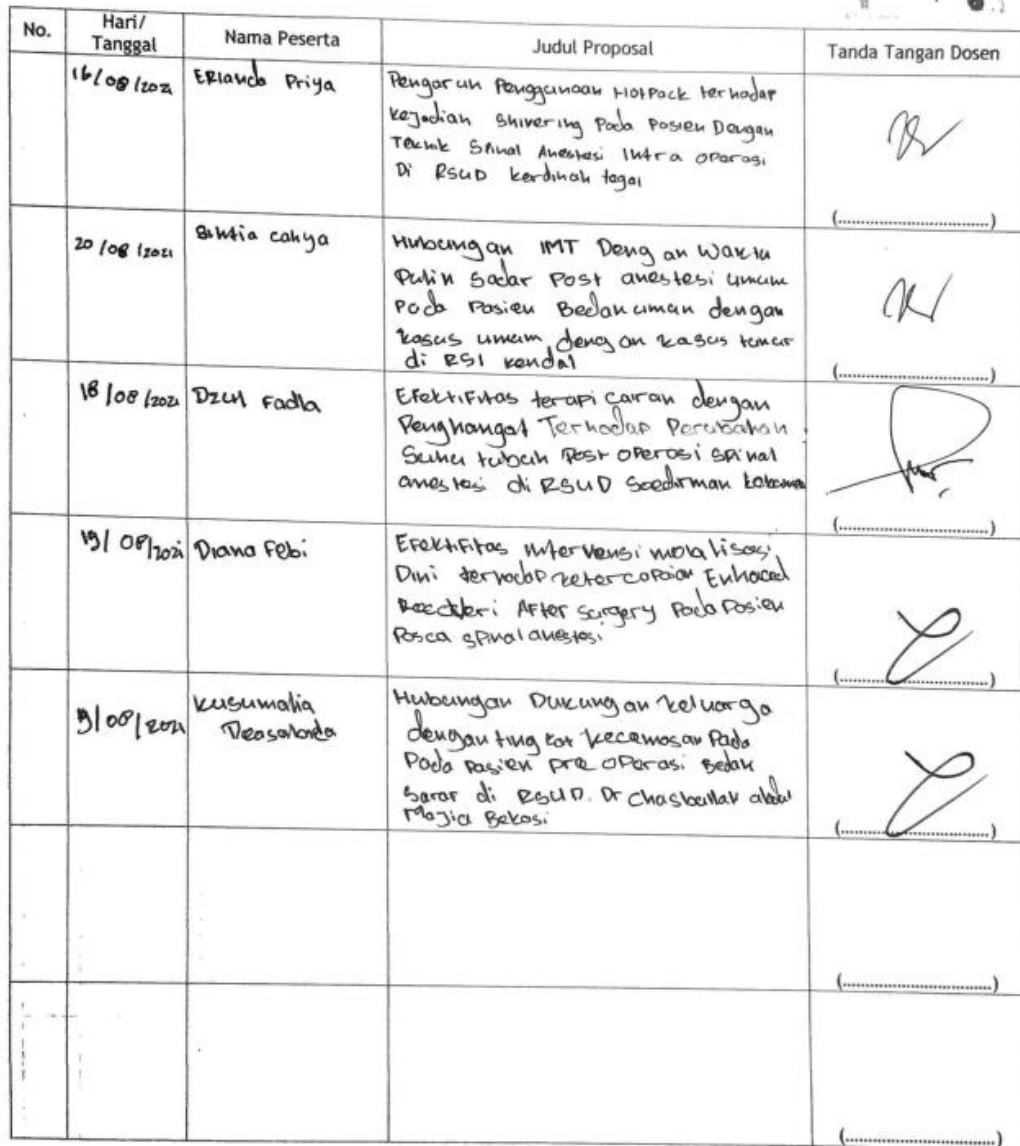 No. Hari/ Tanggal Nama Peserta Judul Proposal Tanda Tangan Dosen
16/08/2021 Erlando Priya Pengarun Penggunaan Hotpack terhadap
kejadian shivering Pada Pasien Dengan
Teknik Spinal Anestesi Intra Operasi
Di RSUD kardinah tegal
(..............................)
20/08/2021 cahya Hubungan IMT Dengan Waktu
Pulih Sadar Post anestesi umum
Pada Pasien dengan
kasus umum dengan kasus
di RSI kendal
(..............................)
18/08/2021 Dzul Fadla Efektifitas terapi cairan dengan
Penghangat Terhadap Perubahan
Suhu tubuh Post Operasi spinal
anestesi di RSUD Soedirman
(..............................)
19/08/2021 Diana Febi Efektifitas intervensi mobilisasi
Dini terhadap ketercapaian Enhaced
After surgery Pada Pasien
Pasca spinal anestesi
(..............................)
19/08/2021 Kusumalia Hubungan Dukungan keluarga
dengan tingkat kecemasan Pada
Pada pasien pre Operasi Bedah
di RSUD. Dr Chasbullah abdul
Majid Bekasi
(..............................)
(..............................)
(..............................)